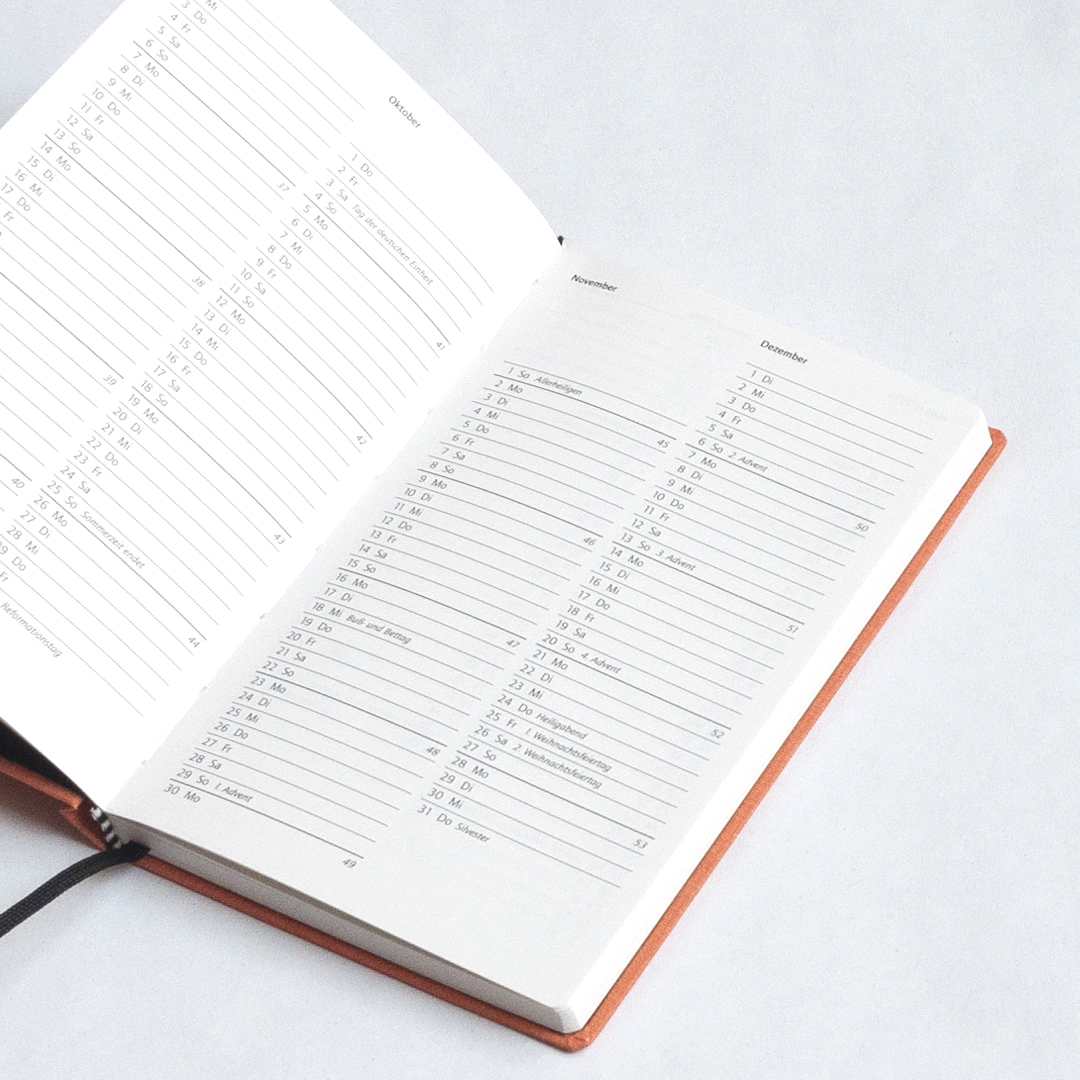 Mi
3 Do
4 Fr
5 Sa
6 So
7 Mo 37
8 Di
9 Mi
10 Do
11 Fr
12 Sa
13 So
14 Mo 38
15 Di
16 Mi
17 Do
Fr
39
40
Oktober
1 Do
2 Fr
3 Sa Tag der deutschen Einheit
4 So
5 Mo 41
6 Di
7 Mi
8 Do
9 Fr
10 Sa
11 So
12 Mo 42
13 Di
14 Mi
15 Do
16 Fr
17 Sa
18 So
19 Mo 43
20 Di
21 Mi
22 Do
23 Fr
24 Sa
25 So Sommerzeit endet
26 Mo 44
27 Di
28 Mi
29 Do
Fr
Reformationstag
November
1 So Allerheiligen
2 Mo 45
3 Di
4 Mi
5 Do
6 Fr
7 Sa
8 So
9 Mo 46
10 Di
11 Mi
12 Do
13 Fr
14 Sa
15 So
16 Mo 47
17 Di
18 Mi Buß und Bettag
19 Do
20 Fr
21 Sa
22 So
23 Mo 48
24 Di
25 Mi
26 Do
27 Fr
28 Sa
29 So 1. Advent
30 Mo 49
Dezember
1 Di
2 Mi
3 Do
4 Fr
5 Sa
6 So 2. Advent
7 Mo 50
8 Di
9 Mi
10 Do
11 Fr
12 Sa
13 So 3. Advent
14 Mo 51
15 Di
16 Mi
17 Do
18 Fr
19 Sa
20 So 4. Advent
21 Mo 52
22 Di
23 Mi
24 Do Heiligabend
25 Fr 1. Weihnachtsfeiertag
26 Sa 2. Weihnachtsfeiertag
27 So
28 Mo 53
29 Di
30 Mi
31 Do Silvester